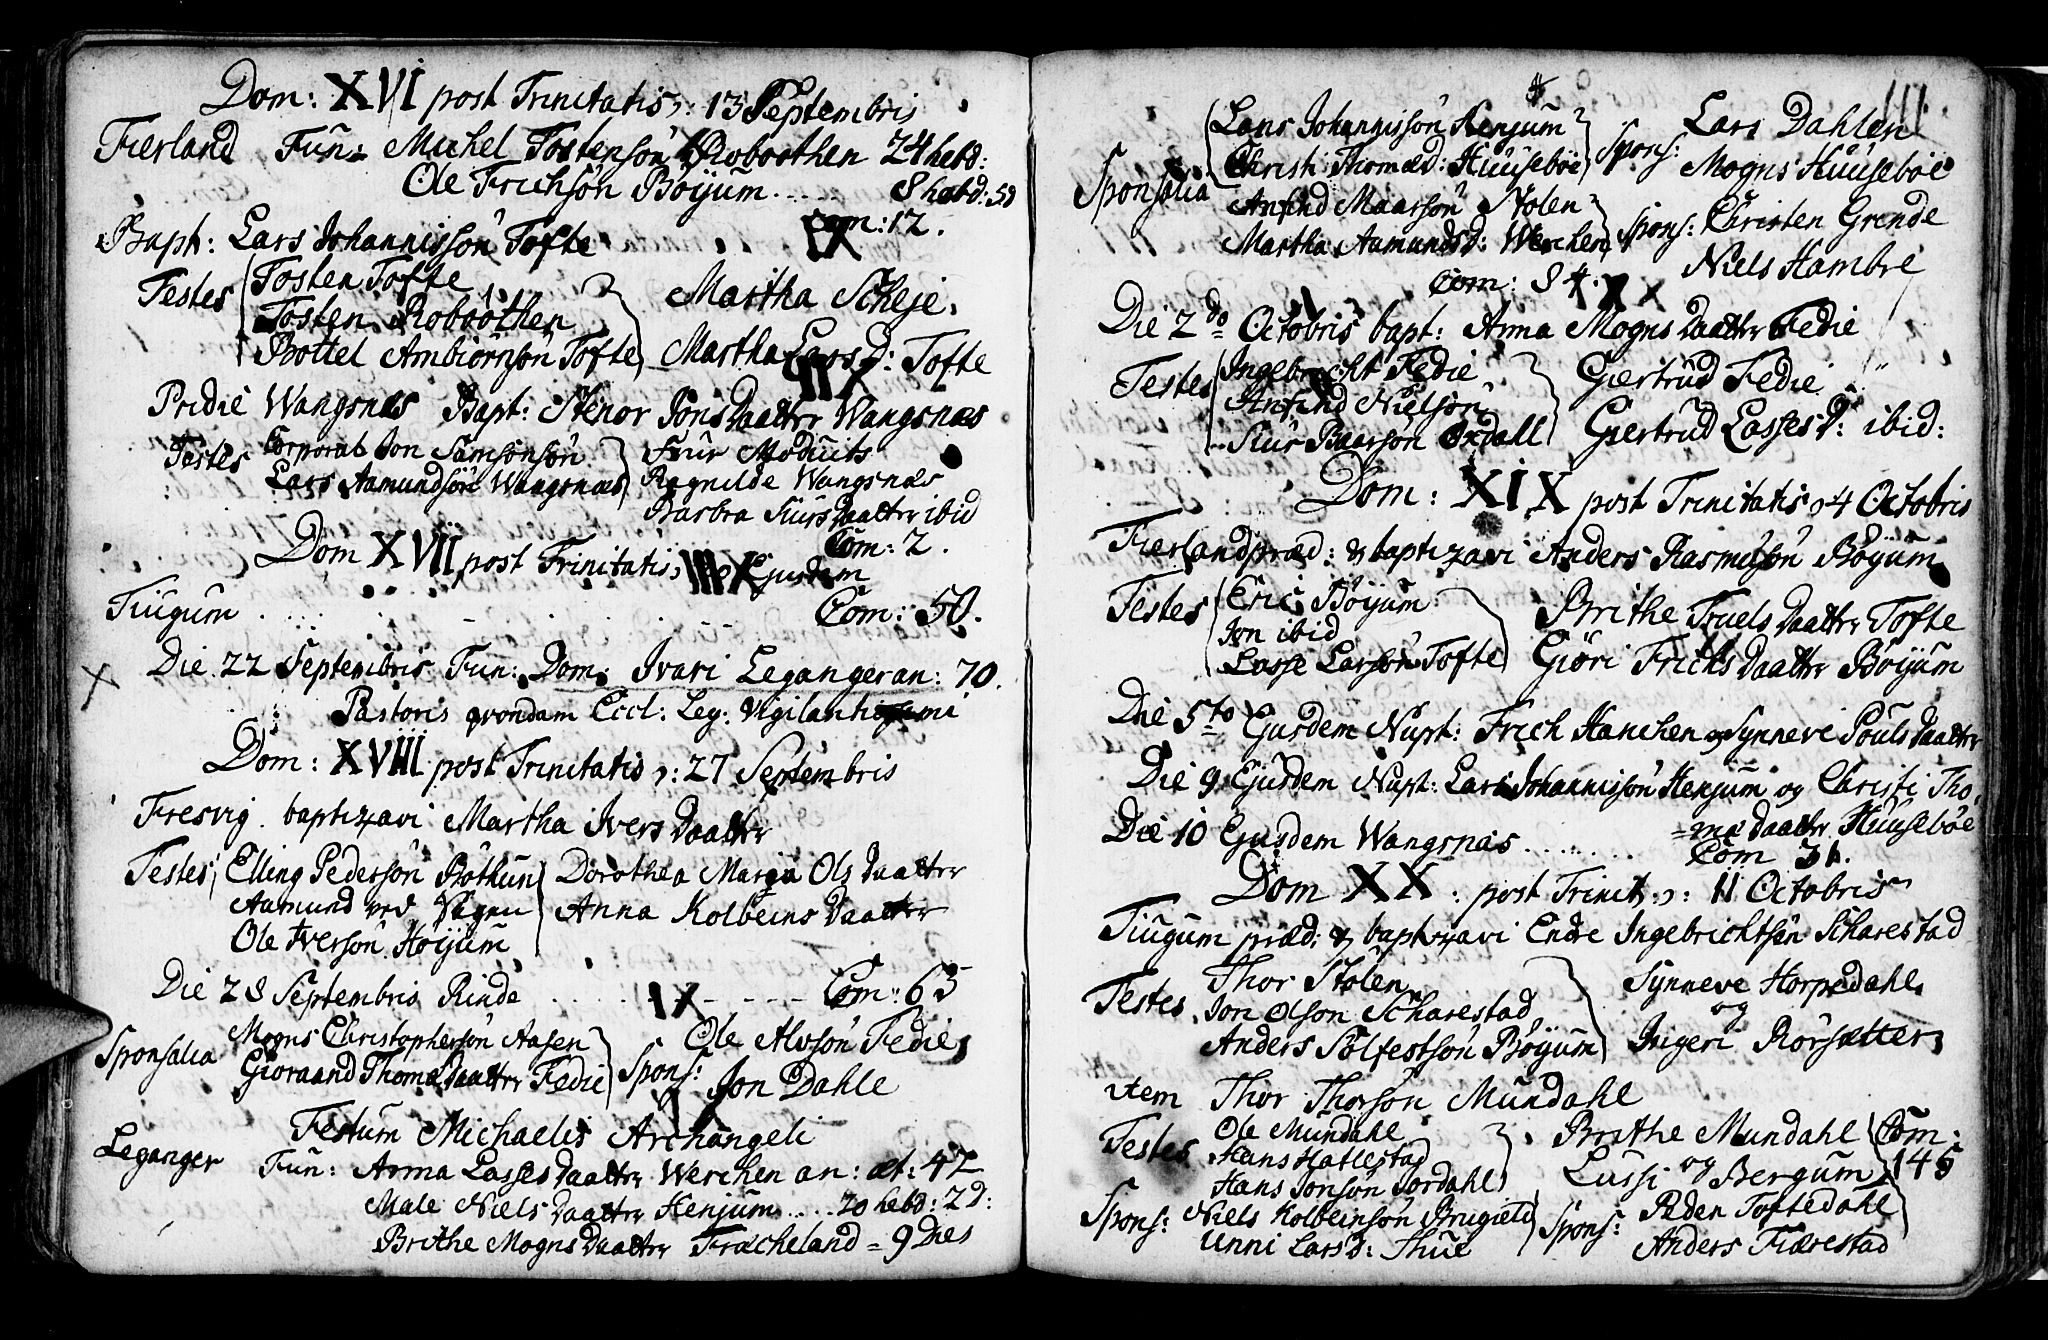 Dom: XVI post Trinitatis, : 13 Septembris
Fierland Fun: Michel Tostensön Roboothen 24 hebd:
Ole Frichsön Böijum ..... 8 hebd: 5d
Com: 12.
Bapt: Lars Johannissön Tofte
Testes Tosten Tofte
Tosten Roboöthen
Bottel Ambiörnsön Tofte
Martha Scheje,
Martha Lars d: Tofte
Pridie Wangsnæs Bapt: Stenor Jons daatter Wangsnæs
Testes Corporal Jon Samsonsön
Lars Aamundsön Wangsnæs
Fuur Moduits
Ragnilde Wangsnæs
Barbra Siurs daatter ibid
Com: 2.
Dom XVII post Trinitatis, Ejusdem
Tiugum Com: 50.
Die 22 Septembris Fun: Dom: Ivari Leganger an: 70.
Pastoris qvondam Eccl: Leg: Vigilantissimi
Dom: XVIII post Trinitatis, : 27 Septembris
Fresvig. baptizavi Martha Ivers daatter
Testes Elling Pedersön Böthun
Aamund ved Vågen
Ole Iversön Höijum
Dorothea Maria Ols daatter
Anna Kolbeins daatter
Die 28 Septembris Rinde ..... Com: 63
Sponsalia Mogns Christophersön Aasen
Gioraand Thomæ daatter Fedie
Spons: Ole Alvsön Fedie,
Jon Dahle
Festum Michaelis Archangeli
Leganger Fun: Anna Lasses daatter Werchen an: æt: 42
Male Niels daatter Henjum ..... 20 hebd: 2 d:
Brithe Mogns daatter Fracheland = 9 Dies
111.
Sponsalia Lars Johannissön Henjum
Christi Thomæd: Huusebøe
Spons: Lars Dahlen
Mogns Huusebøe
Anfind Maarsön Stolen
Martha Aamundsd: Werchen
Spons: Christen Grende
Niels Hambre
Com: 84.
Die 2do Octobris bapt: Anna Mogns daatter Fedie
Testes Ingebrecht Fedie
Anfind Nielsön
Siur Baarsön Oxdall
Giertrud Fedie
Giertrud Lasses d: ibid:
Dom: XIX post Trinitatis, 4 Octobris
Fierland præd: & baptizavi Anders Rasmusön Böyum
Testes Eric Böijum
Jon ibid
Lasse Larsön Tofte
Brithe Truels daatter Tofte
Giöri Frichs daatter Böijum
Die 5to Ejusdem Nupt: Frich Hanchen og Synnevi Pouls daatter
Die 9 Ejusdem Nupt: Lars Johannissön Henjum og Christi Tho,
=mæ daatter Huusebøe
Die 10 Ejusdem Wangsnæs ....... Com 31.
Dom XX: post Trinit, : 11 Octobris
Tiugum præd: & baptizavi Endre Ingebrichtsön Scharestad
Testes Thor Stolen
Jon Olson Scharestad
Anders Sölfestsön Böyum
Synneve Horpedahl
og
Ingeri Rörsætter,
item Thor Thorsön Mundahl
Testes Ole Mundahl
Hans Hatlestad
Hans Jonsön Jordahl
Brithe Mundahl
og
Lussi Bergum
Com:
145
Spons: Niels Kolbeinsön
Unni Lars d: Thue
Spons: Peder Toftedahl
Anders Fiærestad